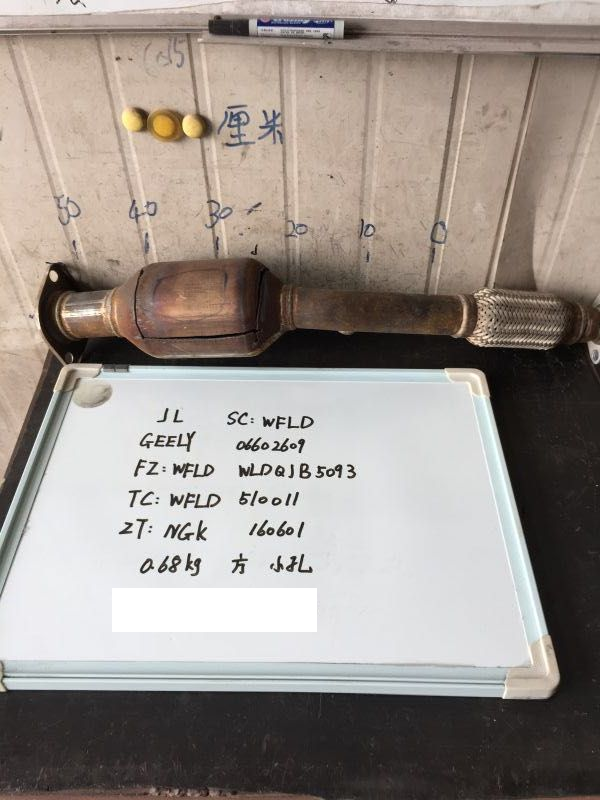 厘米
50 40 30 20 10 0
JL SC: WFLD
GEELY 06602609
FZ: WFLD WLDQJB5093
TC: WFLD 510011
ZT: NGK 160601
0.68kg 方 小孔